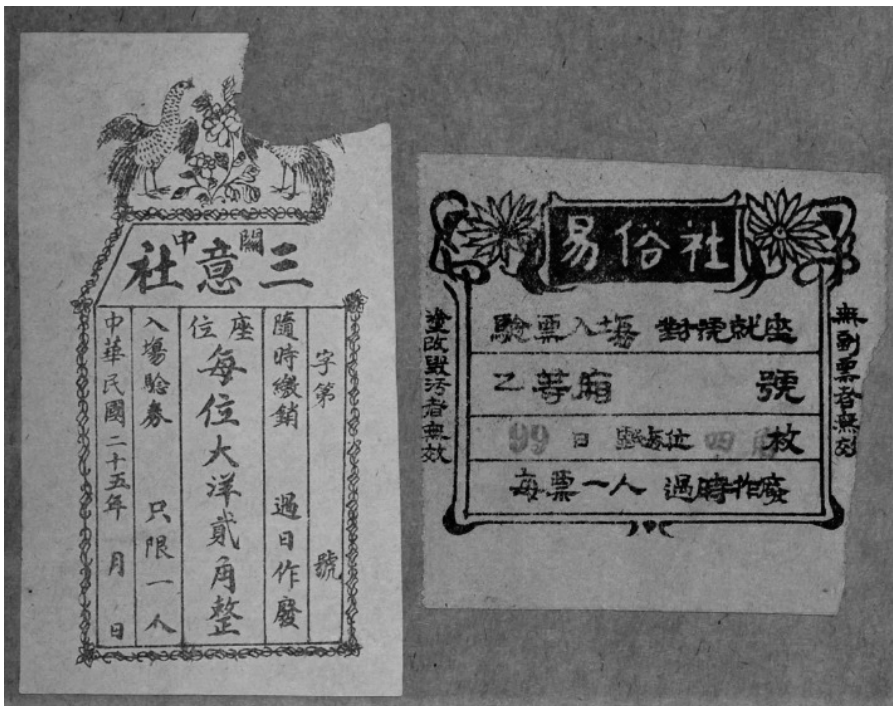 關中
三意社
字第 號
隨時繳銷 過日作廢
座位 每位大洋貳角整
入場驗券 只限一人
中華民國二十五年 月 日
易俗社
無副票者無效
驗票入場 對號就座
乙等廂 號
99 日 每位 四 枚
每票一人 過時作廢
塗改毀污者無效